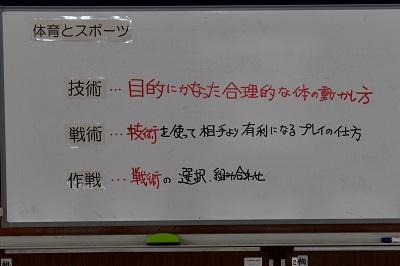 体育とスポーツ
技術 … 目的にかなった合理的な体の動かし方
戦術 … 技術を使って相手より有利になるプレイの仕方
作戦 … 戦術の選択、組み合わせ